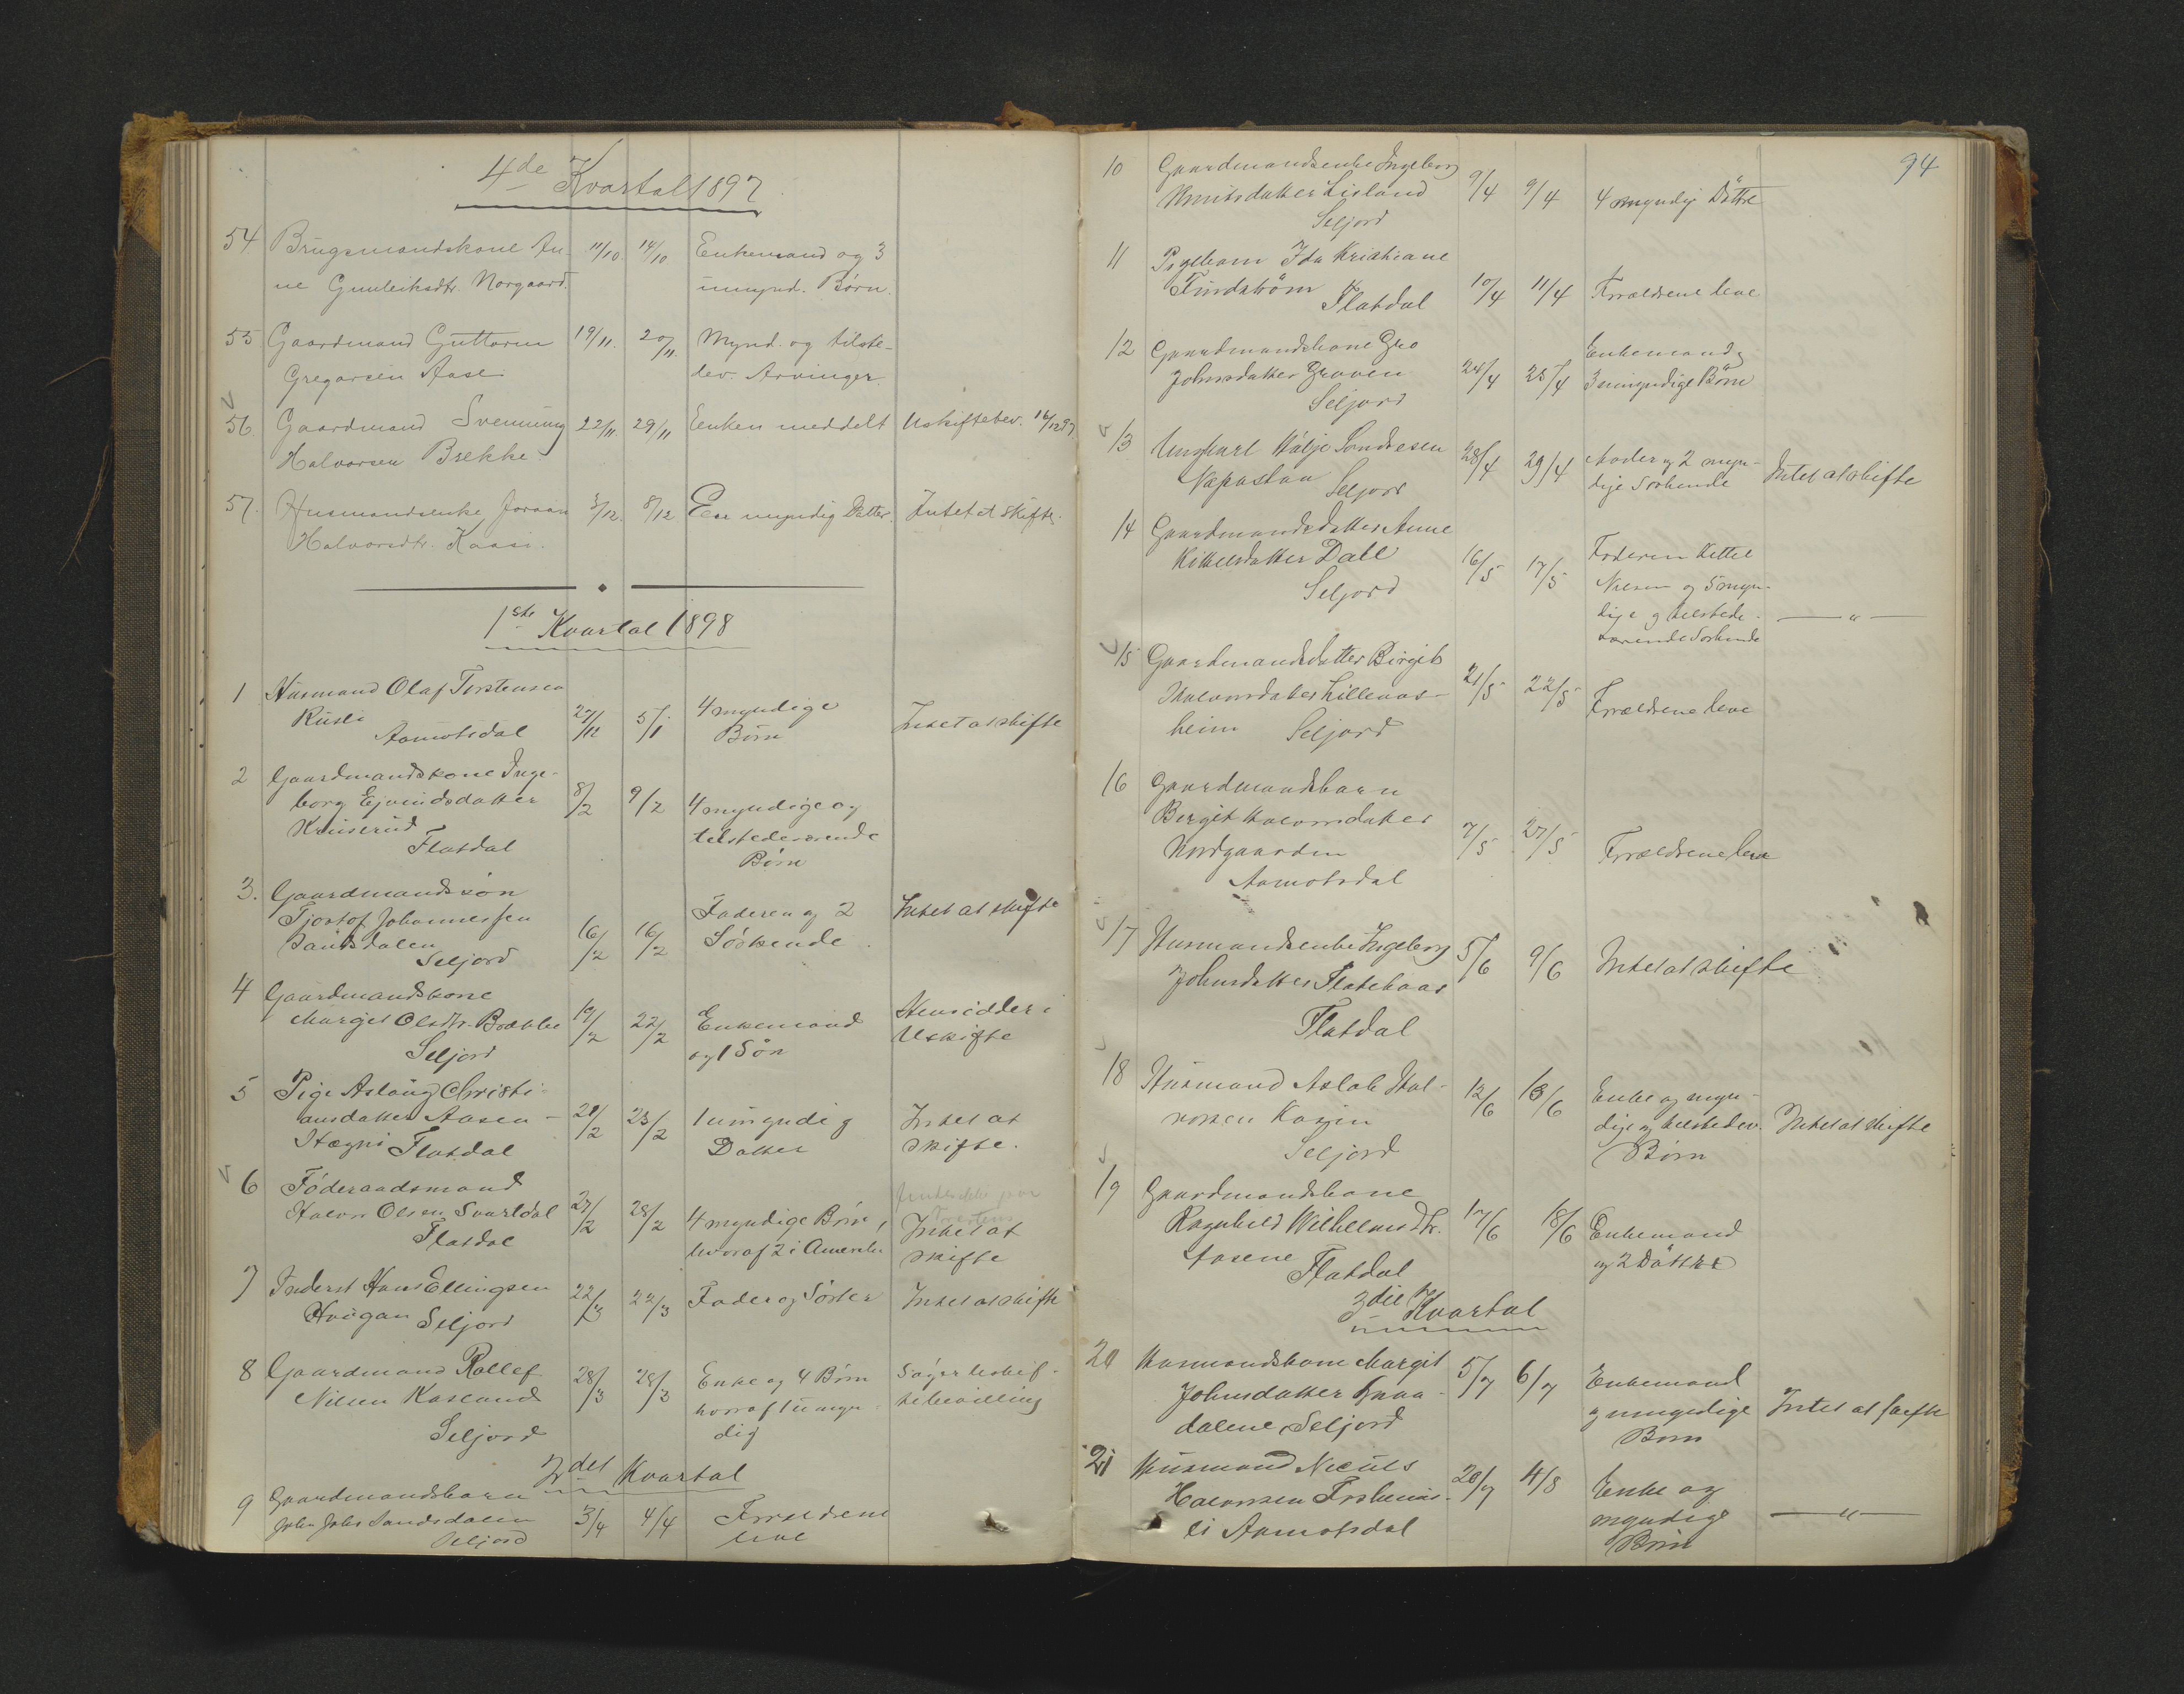 4de Kvartal 1897
54 Brugsmandskone An- 11/10 14/10 Enkemand og 3
ne Gunleiksdtr. Norgaard. umynd. Børn.
55 Gaardmand Guttorm 19/11. 20/11. Mynd. og tilste-
Gregarsen Aase dev. Arvinger.
56. Gaardmand Svenning 22/11. 29/11 Enken meddelt Uskiftebev. 16/12 97
Halvorsen Brekke.
57. Husmandsenke Joraan 3/12. 8/12 Een myndig Datter. Intet at skifte.
Halvorsdtr. Kaasi.
1ste Kvartal 1898
1 Husmand Olaf Torstensen
Rusli 27/12 5/1 4 myndige Intet at skifte
Aamotsdal Børn
2 Gaardmandskone Inge-
borg Ejvindsdatter 8/2 9/2 4 myndige og
tilstedeværende
Flatdal Børn
3. Gaardmandssøn
Tjostof Johannessen 16/2 16/2 Faderen og 2 Intet at skifte
Sandsdalen Søskende.
Seljord
4 Gaardmandskone
Margit Olsdtr. Brække 19/2 22/2 Enkemand Hensidder i
Seljord og 1 Søn Uskifte
5 Pige Aslaug Christi-
ansdatter Aasen- 21/2 23/2 1 umyndig Intet at
Hægni Flatdal Datter skifte.
6 Føderaadsmand
Halvor Olsen Svartdal 27/2 28/2 4 myndige Børn, Intet at
Flatdal hvoraf 2 i Amerika skifte
7 Inderst Hans Ellingsen 22/3 22/3 Fader og Søster Intet at skifte
Seljord
8 Gaardmand Rollef
Nilsen Kasland 28/3 28/3 Enke og 4 Børn Søger Uskif-
Seljord hvoraf 1 umyn- tebevilling
dig
2det Kvartal
9 Gaardmandsbarn
John Johs Sandsdalen 3/4 4/4 Forældrene
Seljord leve
94
10 Gaardmandsenke Ingeborg
Knutsdatter Lisland 9/4 9/4 4 myndig Døttre
Seljord
11 Pigebarn Ida Kristiane
Findstrøm 10/4 11/4 Forældrene leve
Flatdal
12 Gaardmandskone Gro
Johnsdatter Graven 24/4 25/4 Enkemand og
Seljord 3 umyndige Børn
13 Ungkarl Hølje Sondresen 28/4 29/4 Moder og 2 myn- Intet at skifte
Seljord dige Søskende
14 Gaardmandsdatter Anne
Kittelsdatter Dale 16/5 17/5 Faderen Kittel
Seljord Nilsen og 5 myn-
dige og tilstede- — " —
værende Søskende
15 Gaardmandsdatter Birgit
Halvorsdatter Lillevas- 21/5 22/5 Forældrene leve
heim Seljord
16 Gaardmandsbarn
Birgit Halvorsdatter
Nordgaarden 7/5 27/5 Forældrene leve
Aamotsdal
17 Husmandsenke Ingeborg 5/6 9/6 Intet at skifte
Johnsdatter Flatekaas
Flatdal
18 Husmand Aslak Hal- 12/6 13/6 Enke og myn-
vorsen Kasin dige og tilstedev. Intet at skifte
Seljord Børn
19 Gaardmandskone
Ragnhild Wilhelmsdtr. 17/6 18/6 Enkemand
Aasene Flatdal og 2 Døttre
3die Kvartal
20 Husmandskone Margit 5/7 6/7 Enkemand
Johnsdatter Graa- og umyndige Intet at skifte
dalene Seljord Børn
21 Husmand Niculs
Halvorsen Frostenes- 20/7 4/8 Enke og
li Aamotsdal myndige — " —
Børn